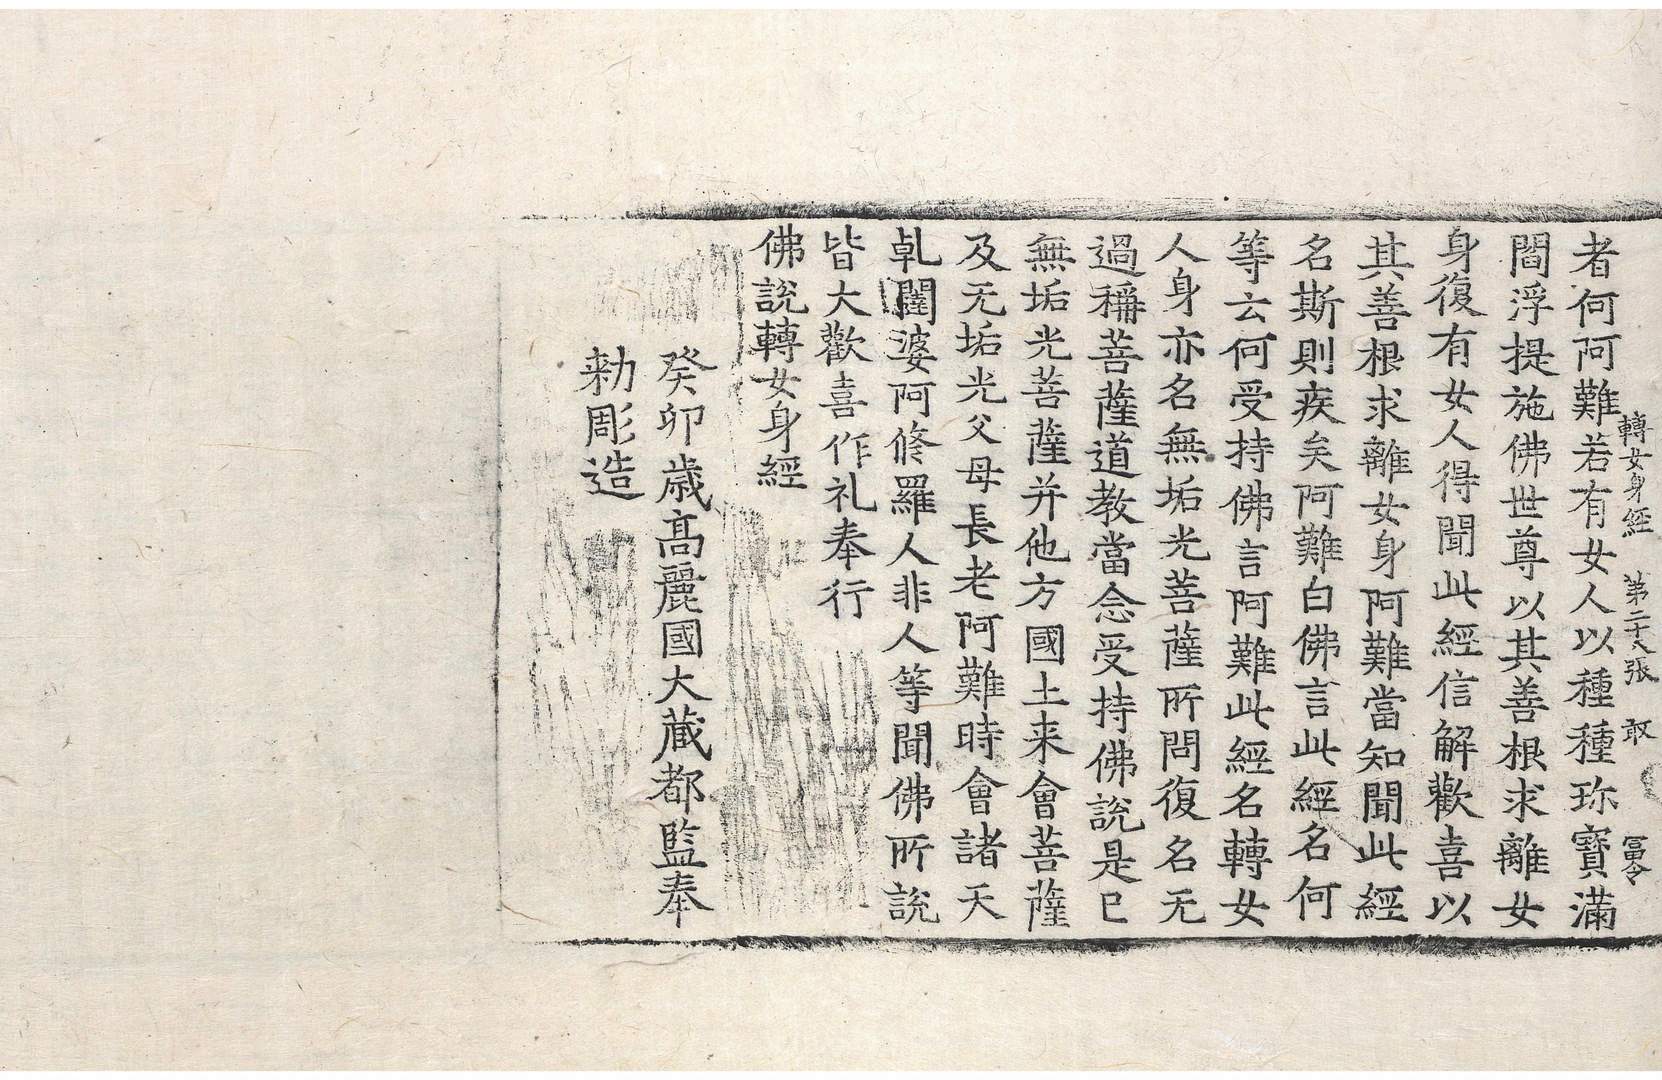 轉女身經 第二十八張 敢 冨令
者何阿難若有女人以種種珎寳滿
閻浮提施佛世尊以其善根求離女
身復有女人得聞此經信解歡喜以
其善根求離女身阿難當知聞此經
名斯則疾矣阿難白佛言此經名何
等云何受持佛言阿難此經名轉女
人身亦名無垢光菩薩所問復名无
過稱菩薩道教當念受持佛說是已
無垢光菩薩并他方國土来會菩薩
及无垢光父母長老阿難時會諸天
乹闥婆阿修羅人非人等聞佛所說
皆大歡喜作礼奉行
佛說轉女身經
癸卯歳高麗國大藏都監奉
勑彫造